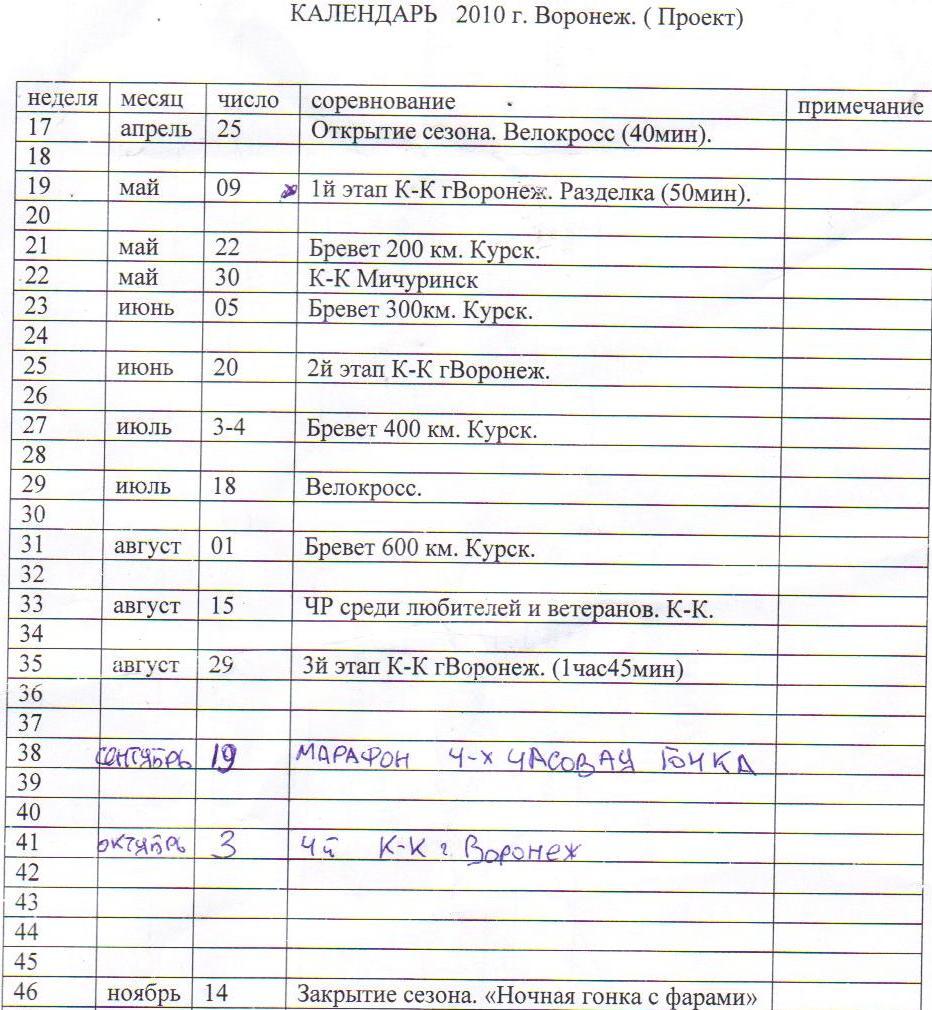 КАЛЕНДАРЬ 2010 г. Воронеж. ( Проект)
неделя месяц число соревнование примечание
17 апрель 25 Открытие сезона. Велокросс (40мин).
18
19 май 09 1й этап К-К гВоронеж. Разделка (50мин).
20
21 май 22 Бревет 200 км. Курск.
22 май 30 К-К Мичуринск
23 июнь 05 Бревет 300км. Курск.
24
25 июнь 20 2й этап К-К гВоронеж.
26
27 июль 3-4 Бревет 400 км. Курск.
28
29 июль 18 Велокросс.
30
31 август 01 Бревет 600 км. Курск.
32
33 август 15 ЧР среди любителей и ветеранов. К-К.
34
35 август 29 3й этап К-К гВоронеж. (1час45мин)
36
37
38 сентябрь 19 МАРАФОН 4-х ЧАСОВАЯ ГОНКА
39
40
41 октябрь 3 4й К-К г. Воронеж
42
43
44
45
46 ноябрь 14 Закрытие сезона. «Ночная гонка с фарами»